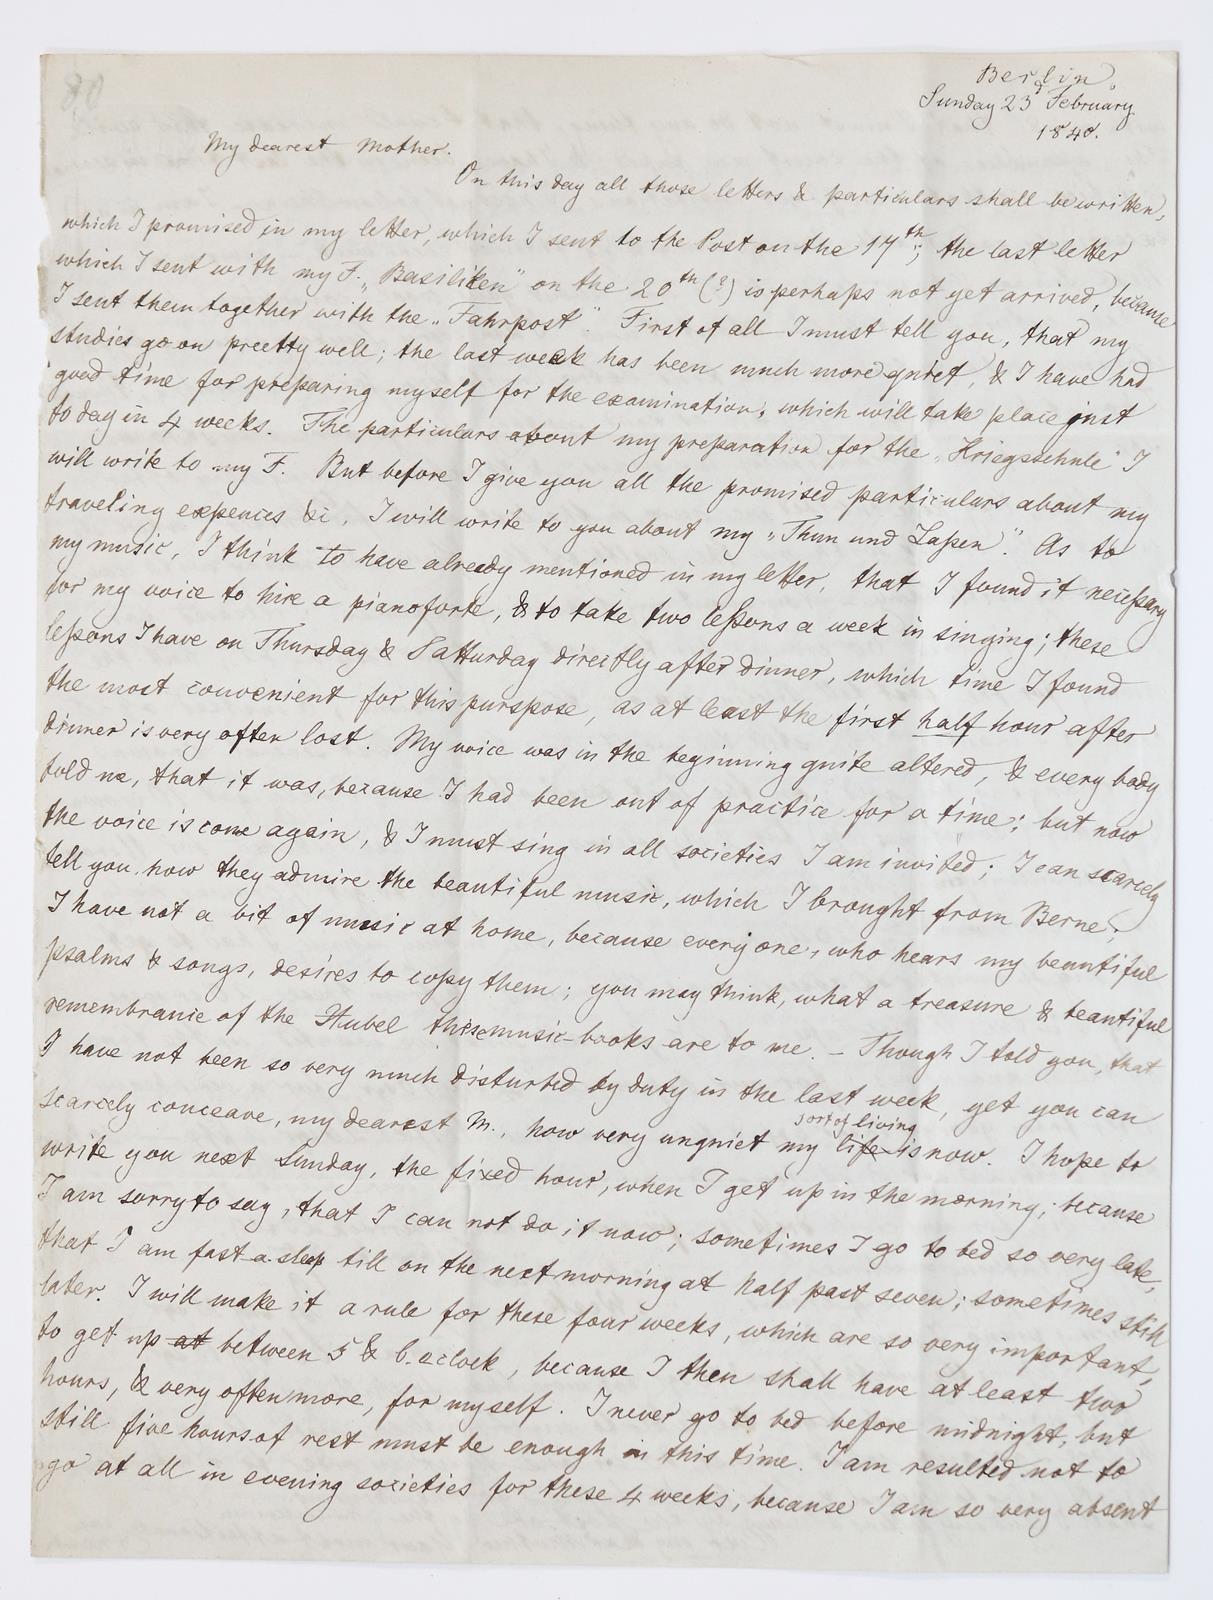 Berlin.
Sunday 23d February
1840.
My dearest Mother.
On this day all those letters & particulars shall be written,
which I promised in my letter, which I sent to the Post on the 17th; the last letter
which I sent with my F. „Basiliken" on the 20th (?) is perhaps not yet arrived, because
I sent them together with the „Fahrpost". First of all I must tell you, that my
studies go on preetty well; the last week has been much more quiet, & I have had
good time for preparing myself for the examination, which will take place just
to day in 4 weeks. The particulars about my preparation for the „Kriegsschule" I
will write to my F. But before I give you all the promised particulars about my
traveling expences &c, I will write to you about my „Thun und Laßen". As to
my music, I think to have already mentioned in my letter, that I found it neceßary
for my voice to hire a pianoforte, & to take two leßons a week in singing; these
leßons I have on Thursday & Satturday directly after dinner, which time I found
the most convenient for this purspose, as at least the first half hour after
dinner is very often lost. My voice was in the beginning quite altered, & every body
told me, that it was, because I had been out of practice for a time; but now
the voice is come again, & I must sing in all societies I am invited; I can scarcely
tell you how they admire the beautiful music, which I brought from Berne;
I have not a bit of music at home, because every one, who hears my beautiful
psalms & songs, desires to copy them; you may think, what a treasure & beautiful
remembrance of the Hubel these music-books are to me. – Though I told you, that
I have not been so very much disturbed by duty in the last week, yet you can
scarcely conceave, my dearest M., how very unquiet my life is now. I hope to
sort of living
write you next Sunday, the fixed hour, when I get up in the morning; because
I am sorry to say, that I can not do it now; sometimes I go to bed so very late,
that I am fast a sleep till on the next morning at half past seven; sometimes still
later. I will make it a rule for these four weeks, which are so very important,
to get up at between 5 & 6. oclock, because I then shall have at least two
hours, & very often more, for myself. I never go to bed before midnight, but
still five hours of rest must be enough in this time. I am resulted not to
go at all in evening societies for these 4 weeks, because I am so very absent